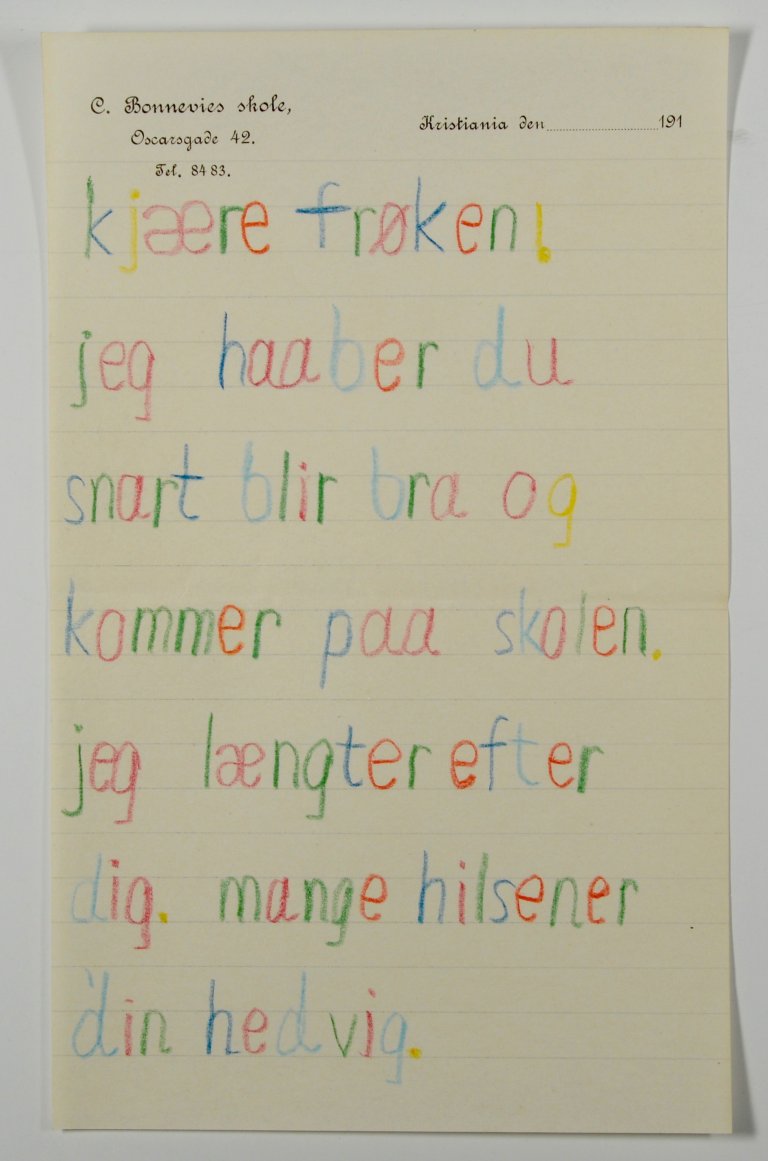 C. Bonnevies skole,
Oscarsgade 42.
Tel. 84 83.
Kristiania den 191
kjære frøken!
jeg haaber du
snart blir bra og
kommer paa skolen.
jeg længter efter
dig. mange hilsener
din hedvig.